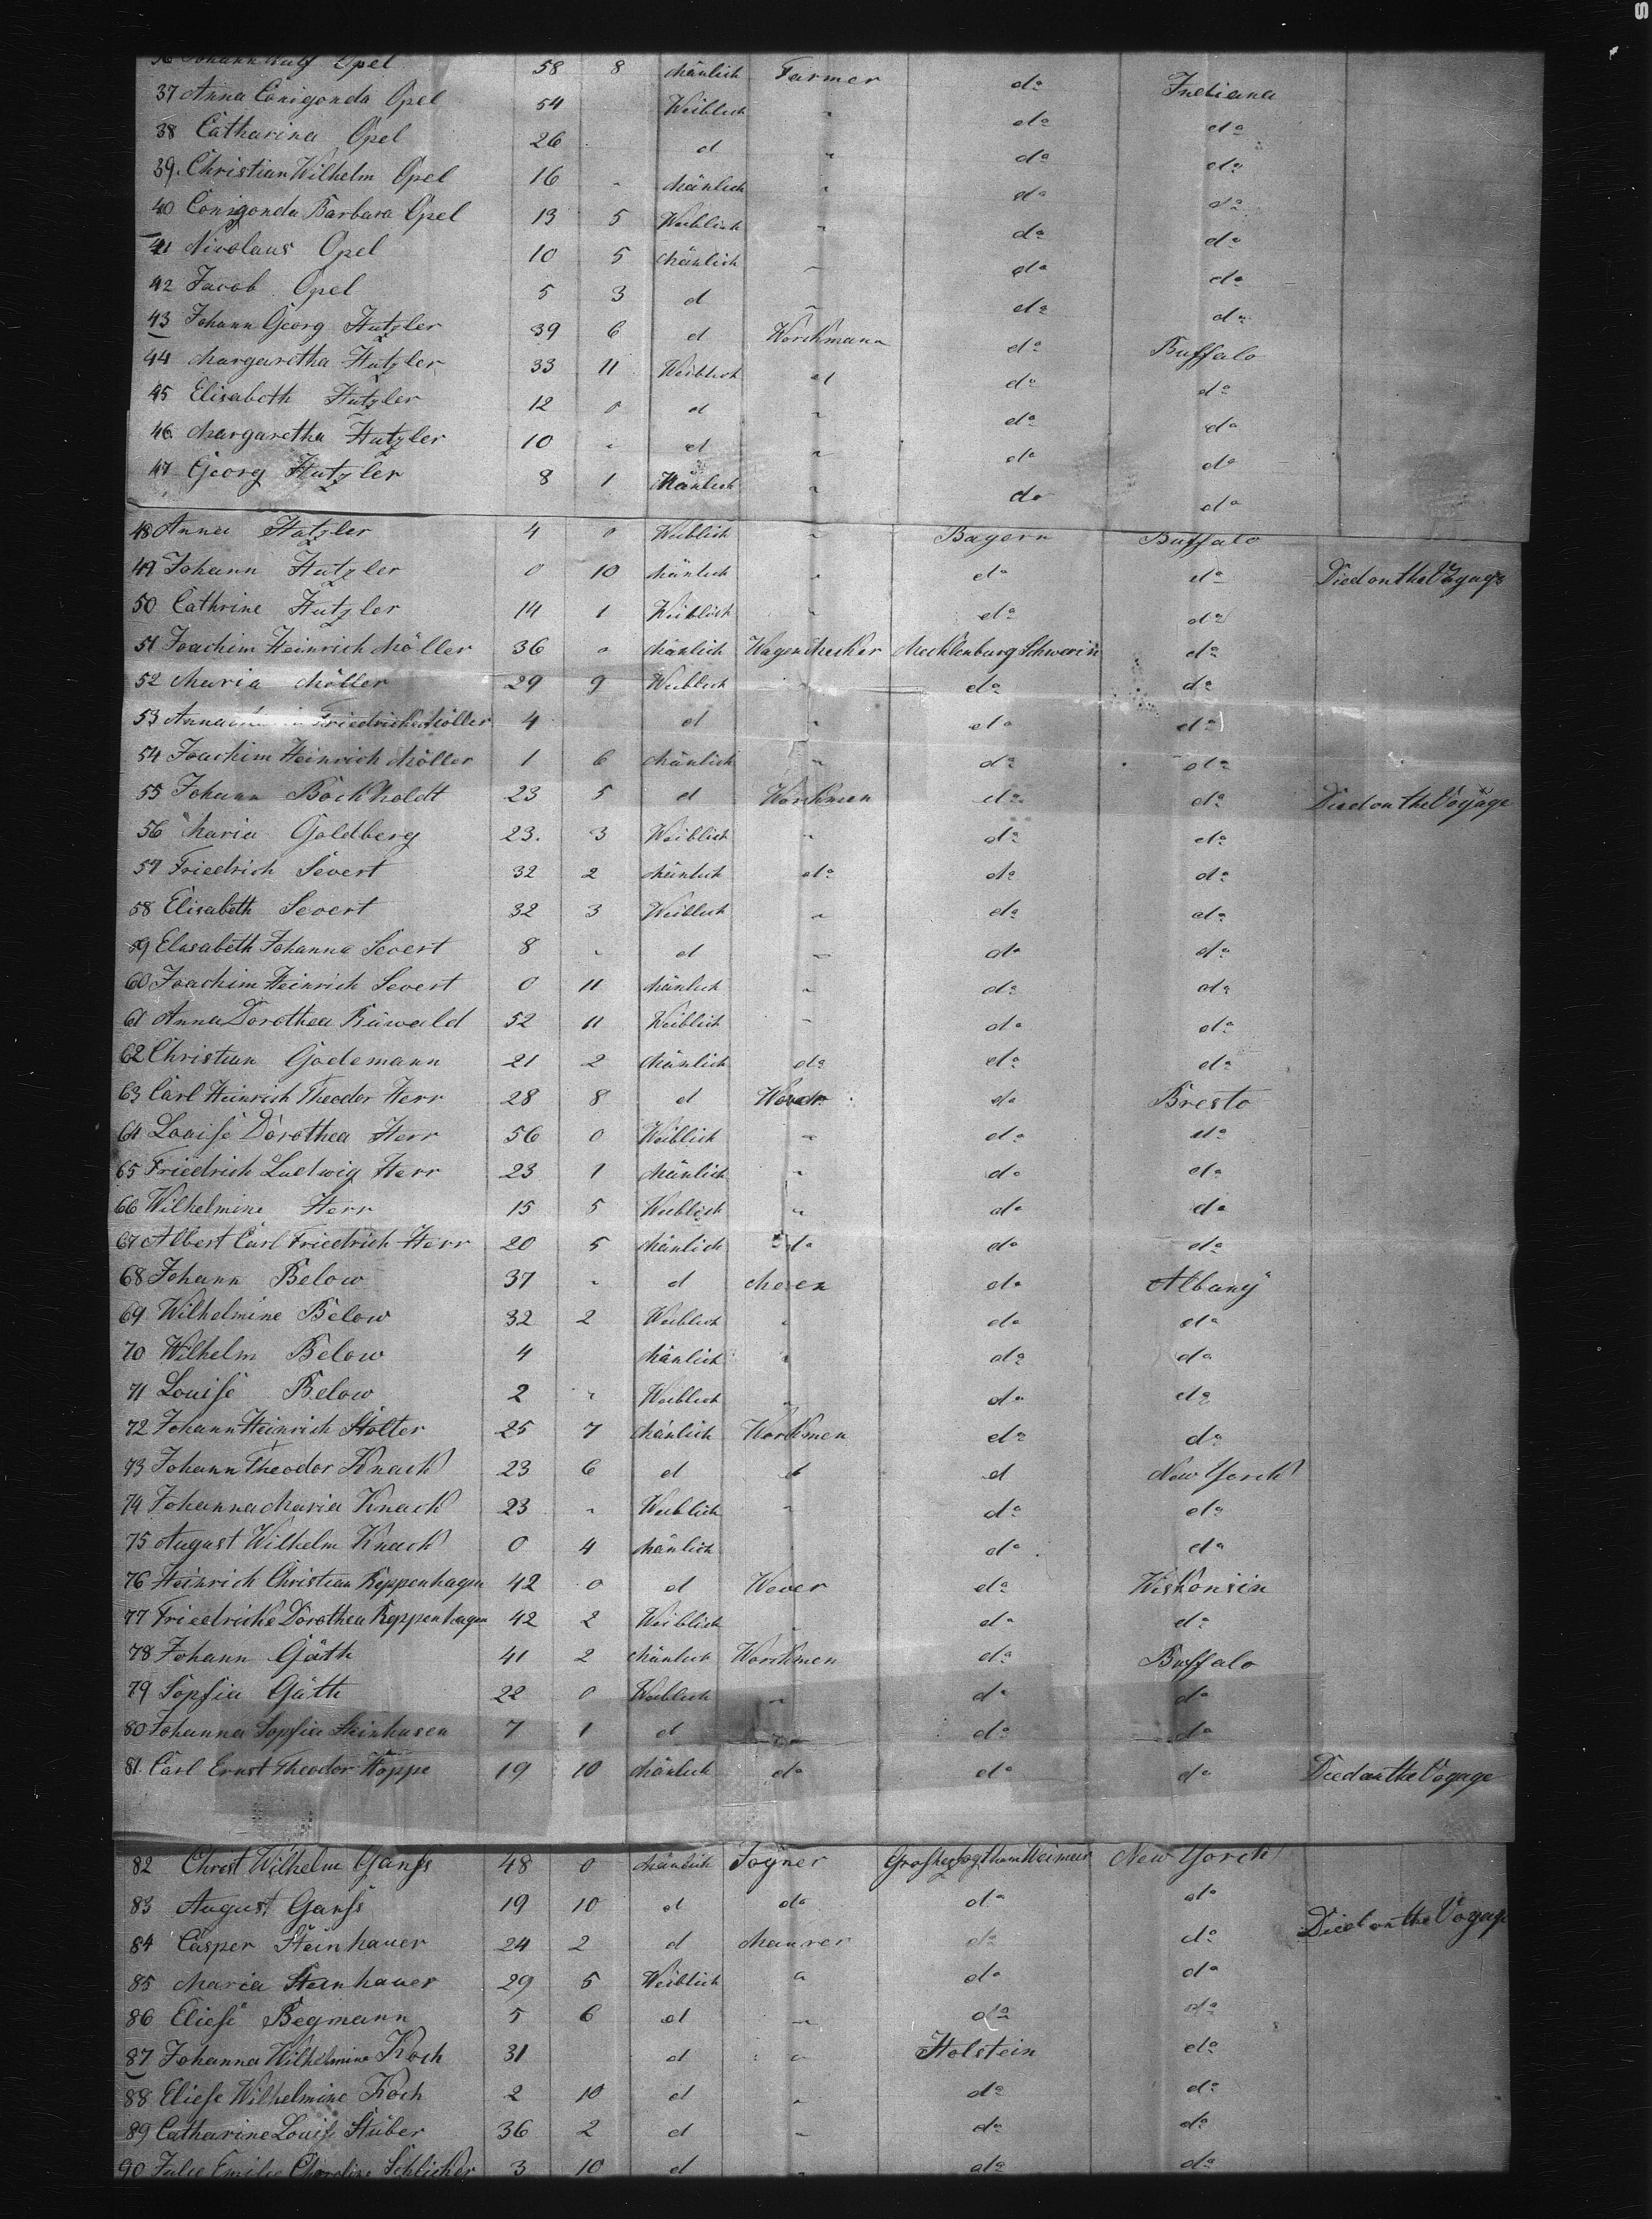 Opel 58 8 Mänlich Farmer do Indiana
37 Anna Conigonda Opel 54 Weiblich " do do
38 Catharina Opel 26 d " do do
39. Christian Wilhelm Opel 16 " Mänlich " do do
40 Conigonda Barbara Opel 13 5 Weiblich " do do
41 Nicolaus Opel 10 5 Mänlich " do do
42 Jacob Opel 5 3 d " do do
43 Johann Georg Hutzler 39 6 d Workmann do Buffalo
44 Margaretha Hutzler 33 11 Weiblich d do do
45 Elisabeth Hutzler 12 0 d " do do
46 Margaretha Hutzler 10 " d " do do
47 Georg Hutzler 8 1 Mänlich " do do
48 Anna Hutzler 4 0 Weiblich " Bayern Buffalo
49 Johann Hutzler 0 10 Mänlich " do do Died on the Voyage
50 Cathrine Hutzler 14 1 Weiblich " do do
51 Joachim Heinrich Möller 36 " Mänlich Wagen Mecklenburg Schwerin do
52 Maria Möller 29 9 Weiblich " do do
53 Anna Friedricke Möller 4 d " do do
54 Joachim Heinrich Möller 1 6 Mänlich " do do
55 Johann Bockholdt 23 5 d Workmen do do Died on the Voyage
56 Maria Goldberg 23. 3 Weiblich " do do
57 Friedrich Severt 32 2 Mänlich do do do
58 Elisabeth Severt 32 3 Weiblich " do do
59 Elisabeth Johanna Severt 8 " d " do do
60 Joachim Heinrich Severt 0 11 Mänlich " do do
61 Anna Dorothea Rüwald 52 11 Weiblich " do do
62 Christian Godemann 21 2 Mänlich do do do
63 Carl Heinrich Theodor Herr 28 8 d do Bresto
64 Louise Dorothea Herr 56 0 Weiblich " do do
65 Friedrich Ludwig Herr 23 1 Mänlich " do do
66 Wilhelmine Herr 15 5 Weiblich " do do
67 Albert Carl Friedrich Herr 20 5 Mänlich do do do
68 Johann Below 37 " d do Albany
69 Wilhelmine Below 32 2 Weiblich " do do
70 Wilhelm Below 4 Mänlich " do do
71 Louise Below 2 " Weiblich " do do
72 Johann Heinrich Stolter 25 7 Mänlich Workmen do do
73 Johann Theodor Knack 23 6 d d d New Yorck
74 Johanna Maria Knack 23 " Weiblich " do do
75 August Wilhelm Knack 0 4 Mänlich do do
76 Heinrich Christian Reppenhagen 42 0 d Wever do Wiskonsin
77 Friedricke Dorothea Reppenhagen 42 2 Weiblich do do
78 Johann Gäth 41 2 Mänlich Workmen do Buffalo
79 Sopfia Gäth 22 0 Weiblich " do do
80 Johanna Sopfia Steinhusen 7 1 d " do do
81. Carl Ernst Theodor Hoppe 19 10 Mänlich do do do Died on the Voyage
82 Christ Wilhelm Ganss 48 0 Mänlich Joyner Grosherzogthum Weimer New Yorck
83 August Ganss 19 10 d do do do
84 Casper Steinhauer 24 2 d Maurer do do Died on the Voyage
85 Maria Steinhauer 29 5 Weiblich " do do
86 Eliese Begmann 5 6 d " do do
87 Johanna Wilhelmine Koch 31 d " Holstein do
88 Eliese Wilhelmine Koch 2 10 d " do do
89 Catharine Louise Stüber 36 2 d " do do
90 Julie Emilie Caroline Schlicker 3 10 d " do do